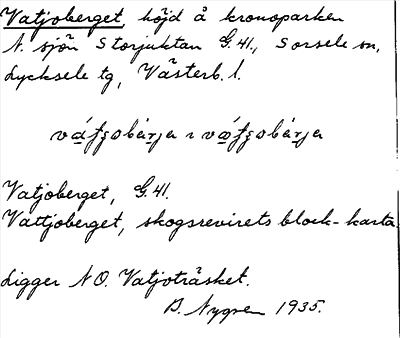 Vatjoberget, höjd å kronoparken
N. sjön Storjuktan G.41., Sorsele sn,
Lycksele tg, Västerb. l.
Vatjoberget, G.41.
Vattjoberget, skogsrevirets block-karta.
Ligger NO. Vatjoträsket.
B. Nygren 1935.